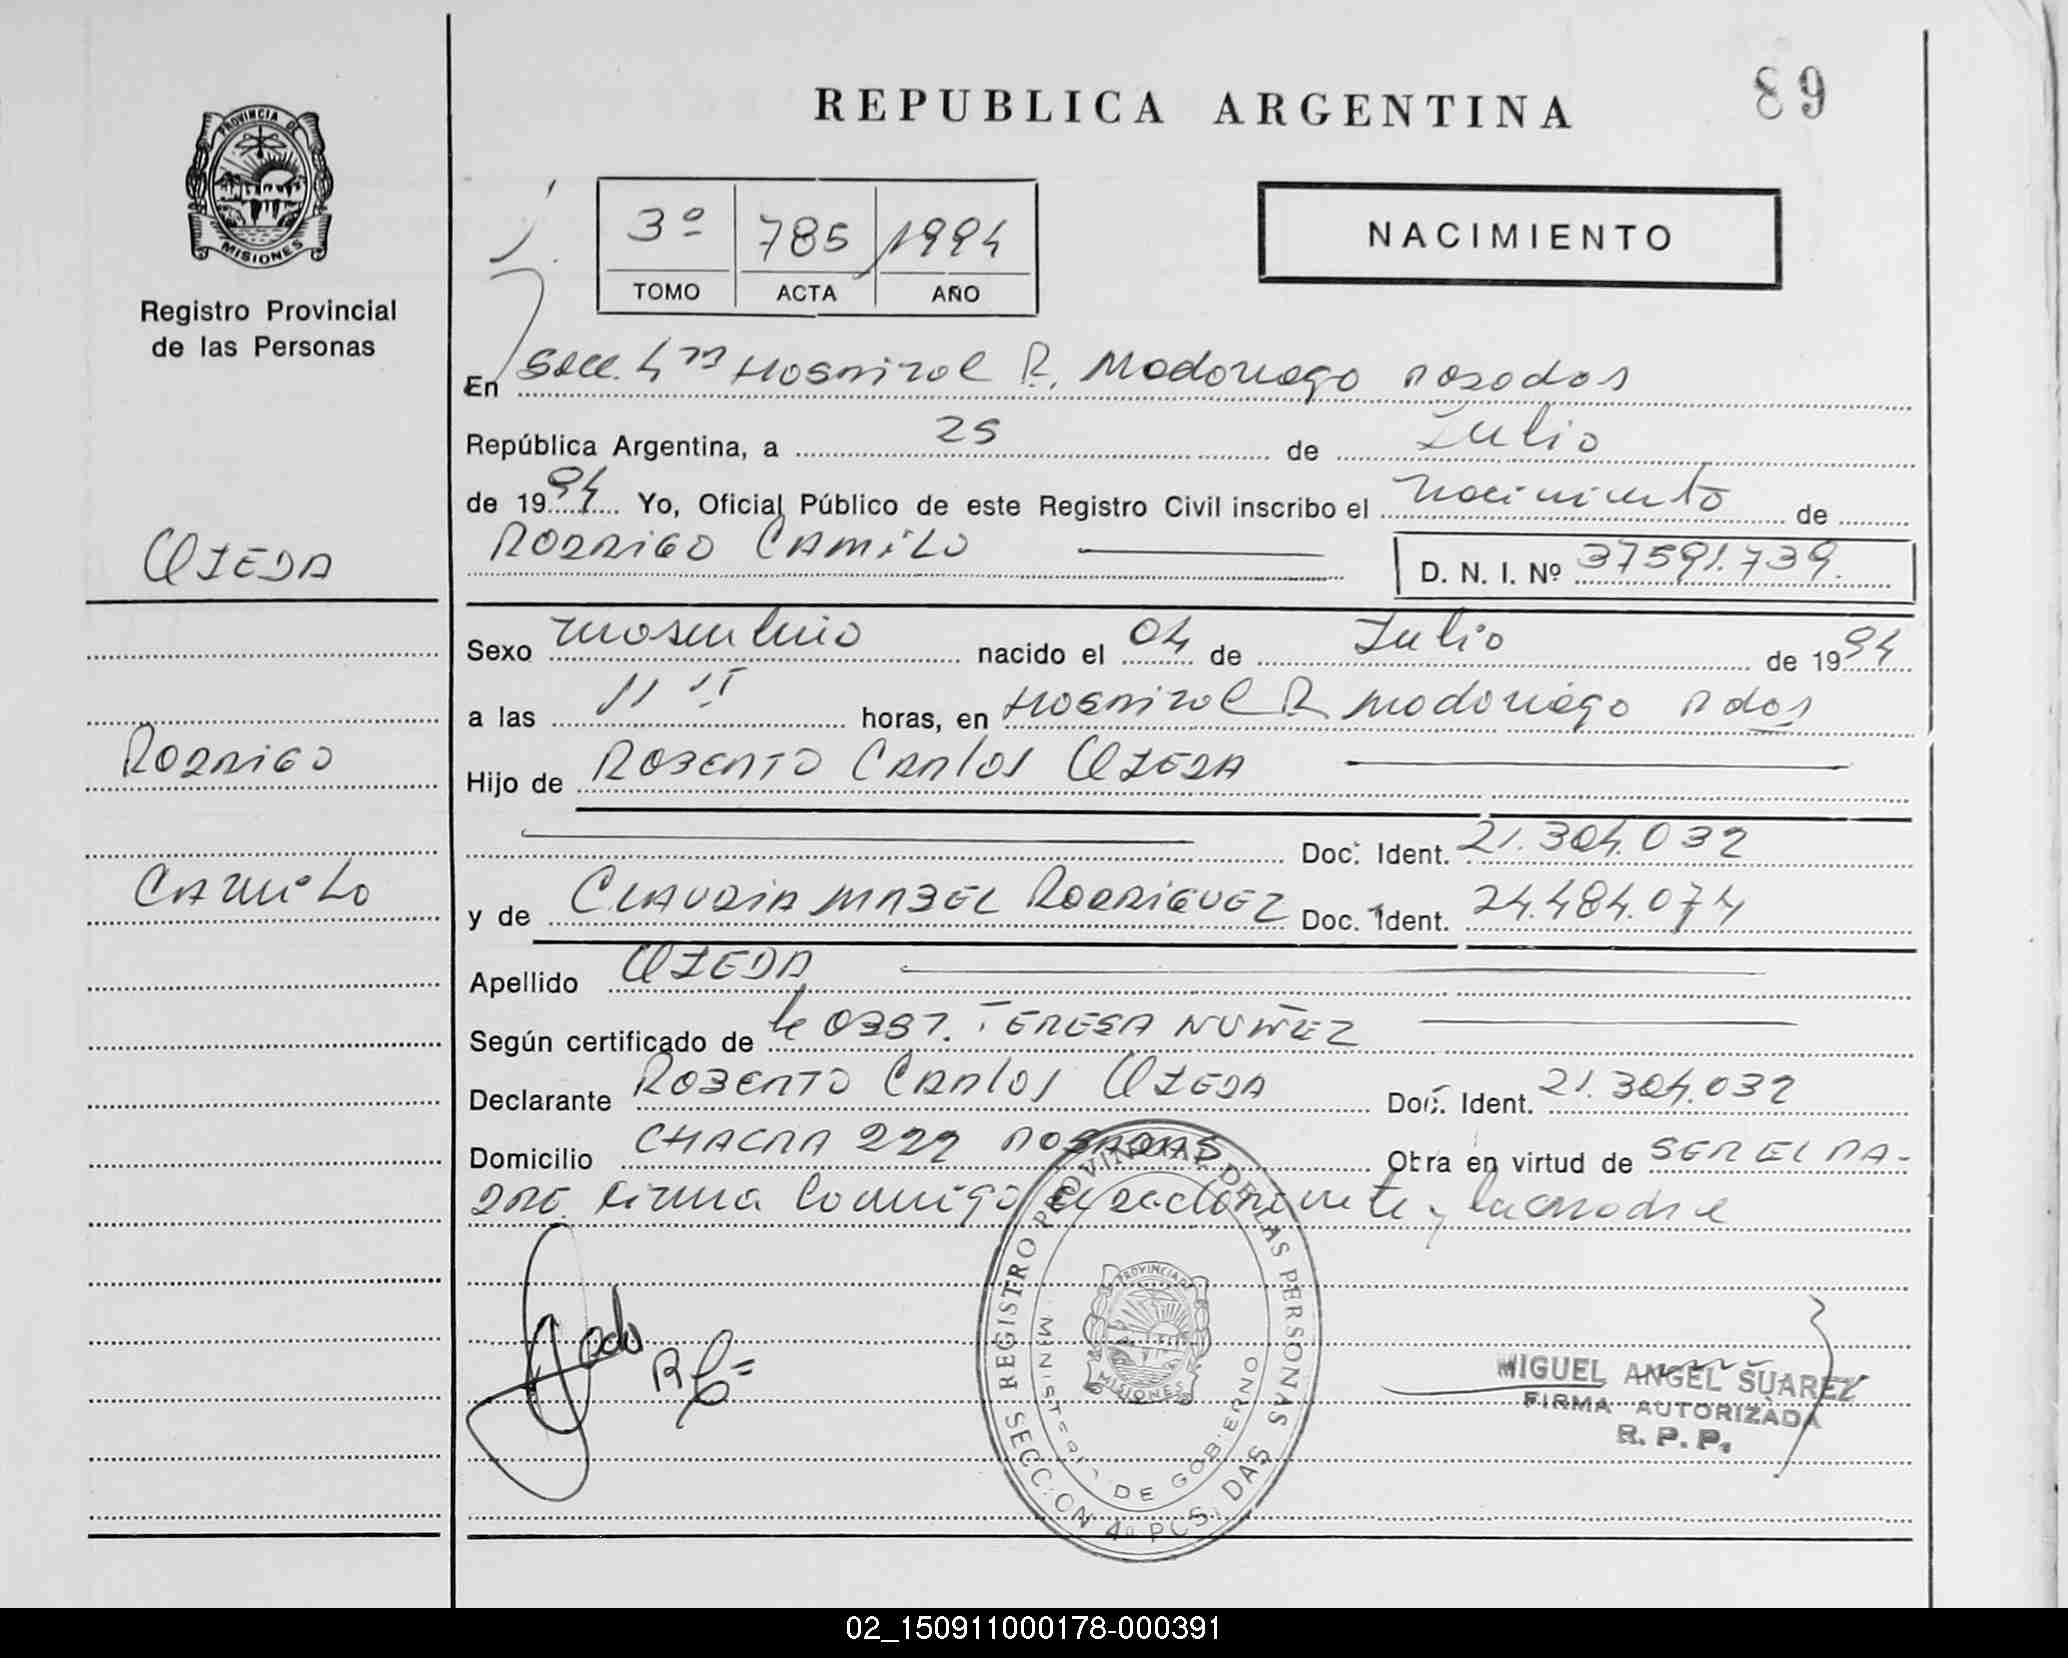 PROVINCIA DE
MISIONES
Registro Provincial
de las Personas
OJEDA
RODRIGO
CAMILO
REPUBLICA ARGENTINA
89
3º 785 1994
TOMO ACTA AÑO
NACIMIENTO
En Secc. 4ta Hospital R. Madariaga Posadas
República Argentina, a 25 de Julio
de 1994 Yo, Oficial Público de este Registro Civil inscribo el nacimiento de
RODRIGO CAMILO
D. N. I. Nº 37591.739.
Sexo masculino nacido el 04 de Julio de 1994
a las 11 horas, en Hospital R Madariaga Pdas
Hijo de ROBERTO CARLOS OJEDA
Doc. Ident. 21.304.032
y de CLAUDIA MABEL RODRIGUEZ Doc. Ident. 24.484.074
Apellido OJEDA
Según certificado de la OBST. TERESA NUÑEZ
Declarante ROBERTO CARLOS OJEDA Doc. Ident. 21.304.032
Domicilio CHACRA 222 POSADAS Obra en virtud de SER EL PA-
DRE. Firma conmigo el declarante y la madre
REGISTRO PROVINCIAL DE LAS PERSONAS
MINISTERIO DE GOBIERNO
PROVINCIA DE
MISIONES
SECCION 4a POSADAS
MIGUEL ANGEL SUAREZ
FIRMA AUTORIZADA
R. P. P.
02_150911000178-000391